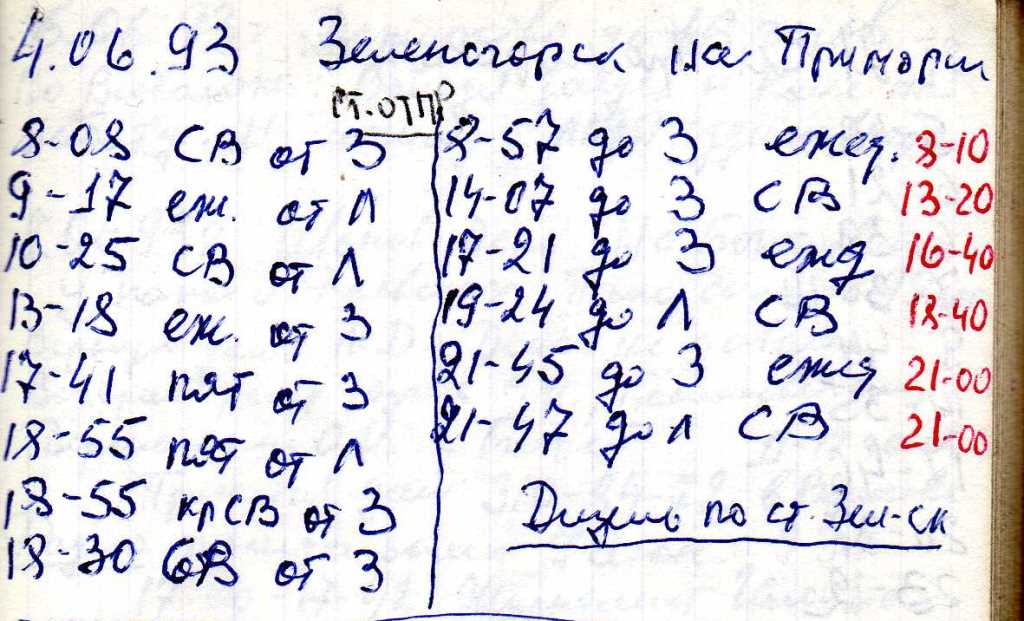 4.06.93 Зеленогорск на Приморск
СТ. ОТПР.
8-08 СВ от З
9-17 еж. от Л
10-25 СВ от Л
13-18 еж. от З
17-41 пят от З
18-55 пят от Л
18-55 крСВ от З
18-30 СВ от З
8-57 до З ежед. 8-10
14-07 до З СВ 13-20
17-21 до З ежд 16-40
19-24 до Л СВ 18-40
21-45 до З ежед 21-00
21-47 до Л СВ 21-00
Дизель по ст. Зел-ск